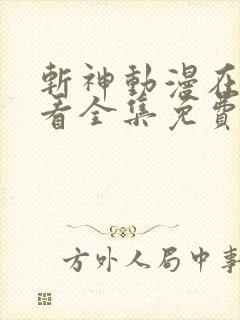 斬神動漫在
看全集免費
方外人局中事